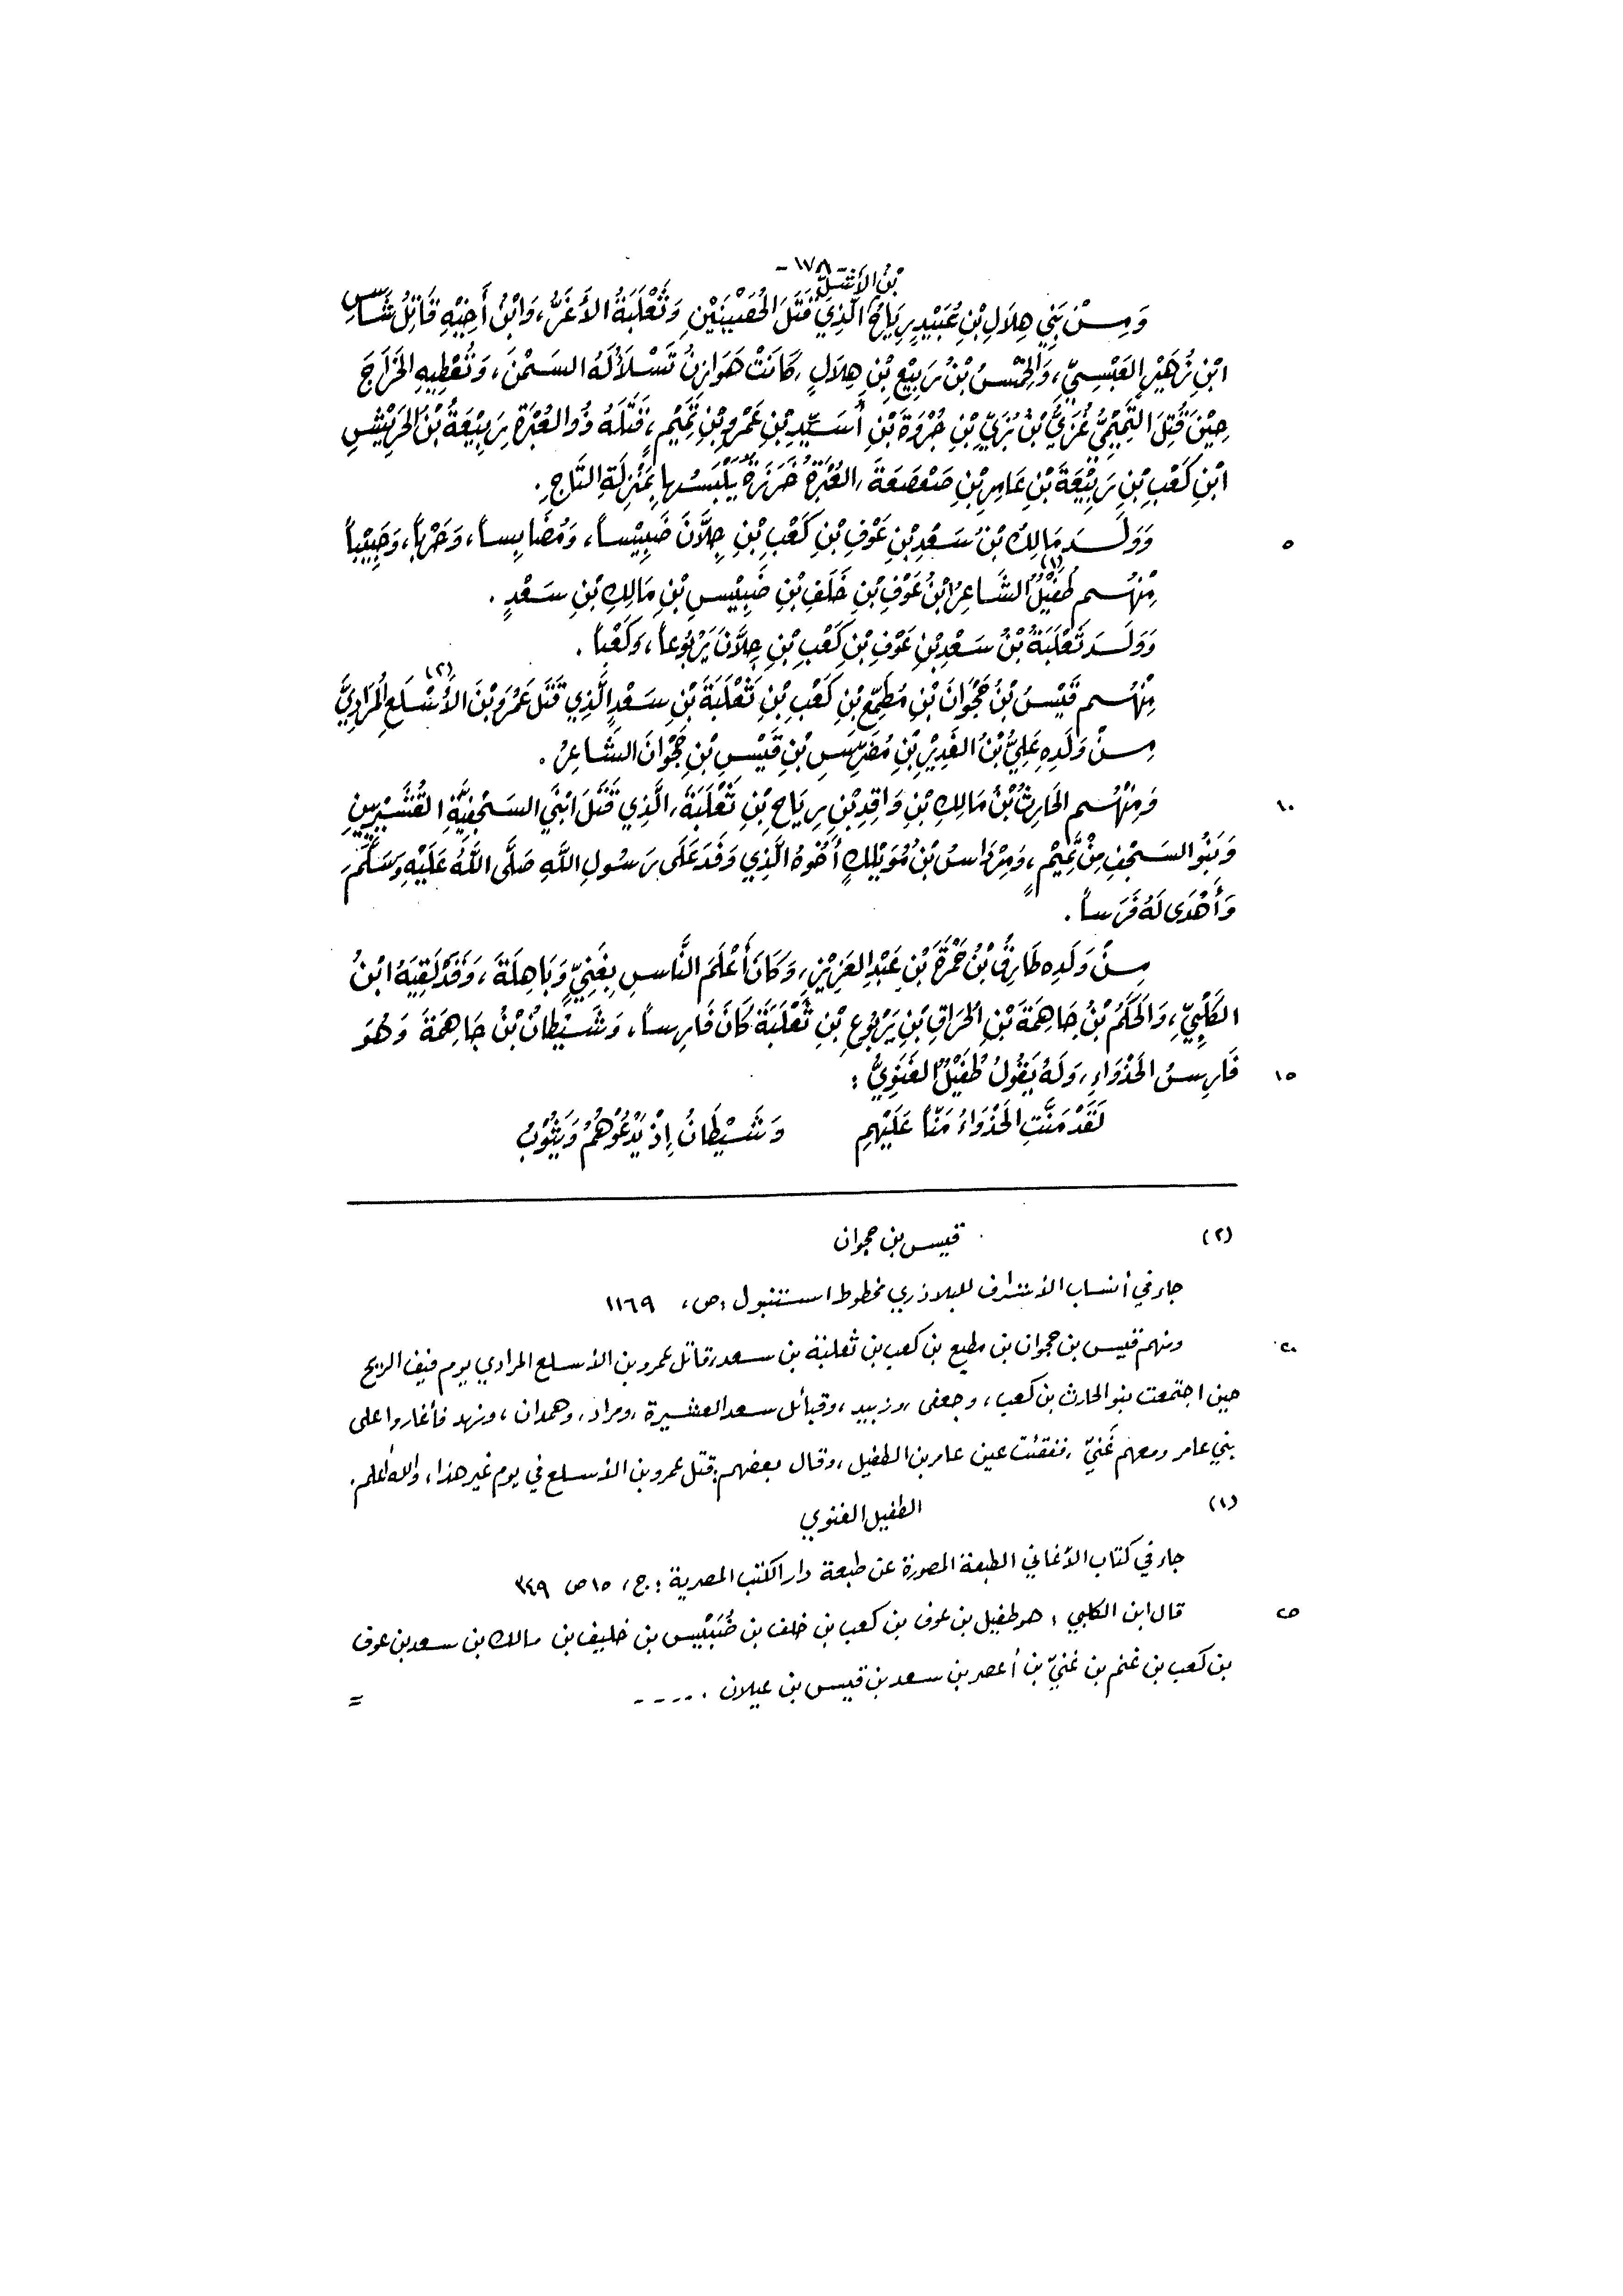 - ١٧٨ -
وَمِنْ بَنِي هِلَالِ بْنِ عُبَيْدٍ رِيَاحُ بْنُ الأَشَلِّ الَّذِي قَتَلَ الْحُصَيْنَيْنِ وَثَعْلَبَةُ الأَغَرُّ، وَابْنُ أَخِيْهِ قَاتِلُ شَأْسِ
ابْنِ زُهَيْرٍ العَبْسِيِّ، وَالحِمْسُ بْنُ رَبِيْعِ بْنِ هِلَالٍ، كَانَتْ هَوَازِنُ تَسْلَأُ لَهُ السَمْنَ، وَتُعْطِيهِ الخَرَاجَ
حِيْنَ قُتِلَ التَّمِيمِيُّ غُزَيُّ بْنُ بُزَيِّ بْنِ جُرْوَةَ بْنِ أُسَيِّدِ بْنِ عَمْرِو بْنِ تَمِيْمٍ، قَتَلَهُ ذُو العُبْرَةِ رَبِيْعَةُ بْنُ الحَرِيْشِ
ابْنِ كَعْبِ بْنِ رَبِيْعَةَ بْنِ عَامِرِ بْنِ صَعْصَعَةَ، العُبْرَةُ خَرَزَةٌ يَلْبَسُها بِمَنْزِلَةِ التَّاجِ.
٥ وَوَلَـدَ مَالِكُ بْنُ سَعْدِ بْنِ عَوْفِ بْنِ كَعْبِ بْنِ جِلَّانَ ضَبِيْساً، وَمُضَابِساً، وَحَرْباً، وَحَبِيْباً
مِنْهُـم طُفَيْلٌ (١) الشَّاعِرُ ابْنُ عَوْفِ بْنِ خَلَفِ بْنِ ضَبِيْسِ بْنِ مَالِكِ بْنِ سَعْدٍ.
وَوَلَـدَ ثَعْلَبَةُ بْنُ سَعْدِ بْنِ عَوْفِ بْنِ كَعْبِ بْنِ جِلَّانَ يَرْبُوعاً، وَكَعْباً.
مِنْهُـم قَيْسُ بْنُ جَحْوَانَ بْنِ مُطِيْعِ بْنِ كَعْبِ بْنِ ثَعْلَبَةَ بْنِ سَعْدٍ الَّذِي قَتَلَ عَمْرَو بْنَ الأَسْلَعِ المُرَادِيَّ (٢)
مِنْ وَلَدِهِ عَلِيُّ بْنُ الغَدِيْرِ بْنِ مُضَرِّسِ بْنِ قَيْسِ بْنِ جَحْوَانَ الشَّاعِرُ.
١٠ وَمِنْهُـم الحَارِثُ بْنُ مَالِكِ بْنِ وَاقِدِ بْنِ رِيَاحِ بْنِ ثَعْلَبَةَ، الَّذِي قَتَلَ ابْنَيِ السَجْفِيَّةِ القُشَيْرِيِّينِ
وَبَنُو السَجْفِ مِنْ تَمِيْمٍ، وَمِرْدَاسُ بْنُ مُوَيْلِكٍ أَخُوهُ الَّذِي وَفَدَ عَلَى رَسُولِ اللَّهِ صَلَّى اللَّهُ عَلَيْهِ وَسَلَّمَ
وَأَهْدَى لَهُ فَرَساً.
مِنْ وَلَدِهِ طَارِقُ بْنُ حَمْزَةَ بْنِ عَبْدِ العَزِيْزِ، وَكَانَ أَعْلَمَ النَّاسِ بِغَنِيٍّ وَبَاهِلَةَ، وَقَدْ لَقِيَهُ ابْنُ
الكَلْبِيِّ، وَالحَكَمُ بْنُ جَاهِمَةَ بْنِ الحَرَاقِ بْنِ يَرْبُوعِ بْنِ ثَعْلَبَةَ كَانَ فَارِساً، وَشَيْطَانُ بْنُ جَاهِمَةَ وَهُوَ
١٥ فَارِسُ الخَذْوَاءِ، وَلَهُ يَقُولُ طُفَيْلٌ الغَنَوِيُّ:
لَقَدْ مَنَّتِ الخَذْوَاءُ مَنّاً عَلَيْهِمِ وَشَيْطَانُ إِذْ يَدْعُوْهُمُ وَيَثُوْبُ
(٢) قيس بن جحوان
جاء في أنساب الأشراف للبلاذري مخطوط استنبول: ص، ١١٦٩
٢٠ ومنهم قيس بن جحوان بن مطيع بن كعب بن ثعلبة بن سعد، قاتل عمرو بن الأسلع المرادي يوم فيف الريح
حين اجتمعت بنو الحارث بن كعب، وجعفى، وزبيد، وقبائل سعد العشيرة، ومراد، وهمدان، ونهد فأغاروا على
بني عامر ومعهم غَنيّ، ففقئت عين عامر بن الطفيل، وقال بعضهم: قتل عمرو بن الأسلع في يوم غير هذا، والله أعلم.
(١) الطفيل الغنوي
جاء في كتاب الأغاني الطبعة المصورة عن طبعة دار الكتب المصرية: ج، ١٥ ص ٣٤٩
٢٥ قال ابن الكلبي: هو طفيل بن عوف بن كعب بن خلف بن ضُبَيْس بن خليف بن مالك بن سعد بن عوف
بن كعب بن غنم بن غنيّ بن أعصر بن سعد بن قيس بن عيلان . . . . .
=